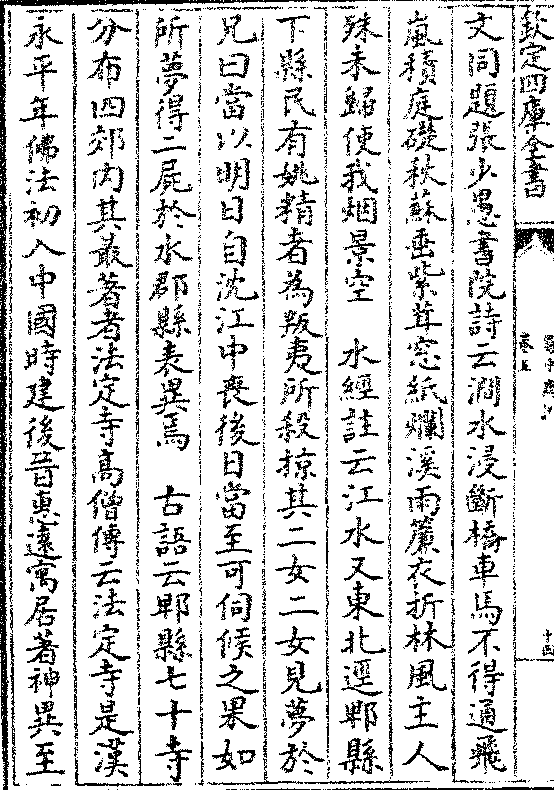 欽定四庫全書
卷五
十四
文同題張少愚書院詩云澗水浸斷橋車馬不得通飛
嵐積庭礎秋蘇垂紫茸窓紙爛溪雨簾衣折林風主人
殊未歸使我烟景空　水經註云江水又東北逕郫縣
下縣民有姚精者為叛夷所殺掠其二女二女見夢於
兄曰當以明日自沈江中喪後日當至可伺候之果如
所夢得二屍於水郡縣表異焉　古語云郫縣七十寺
分布四郊内其最著者法定寺高僧傳云法定寺是漢
永平年佛法初入中國時建後晉惠遠寓居著神異至